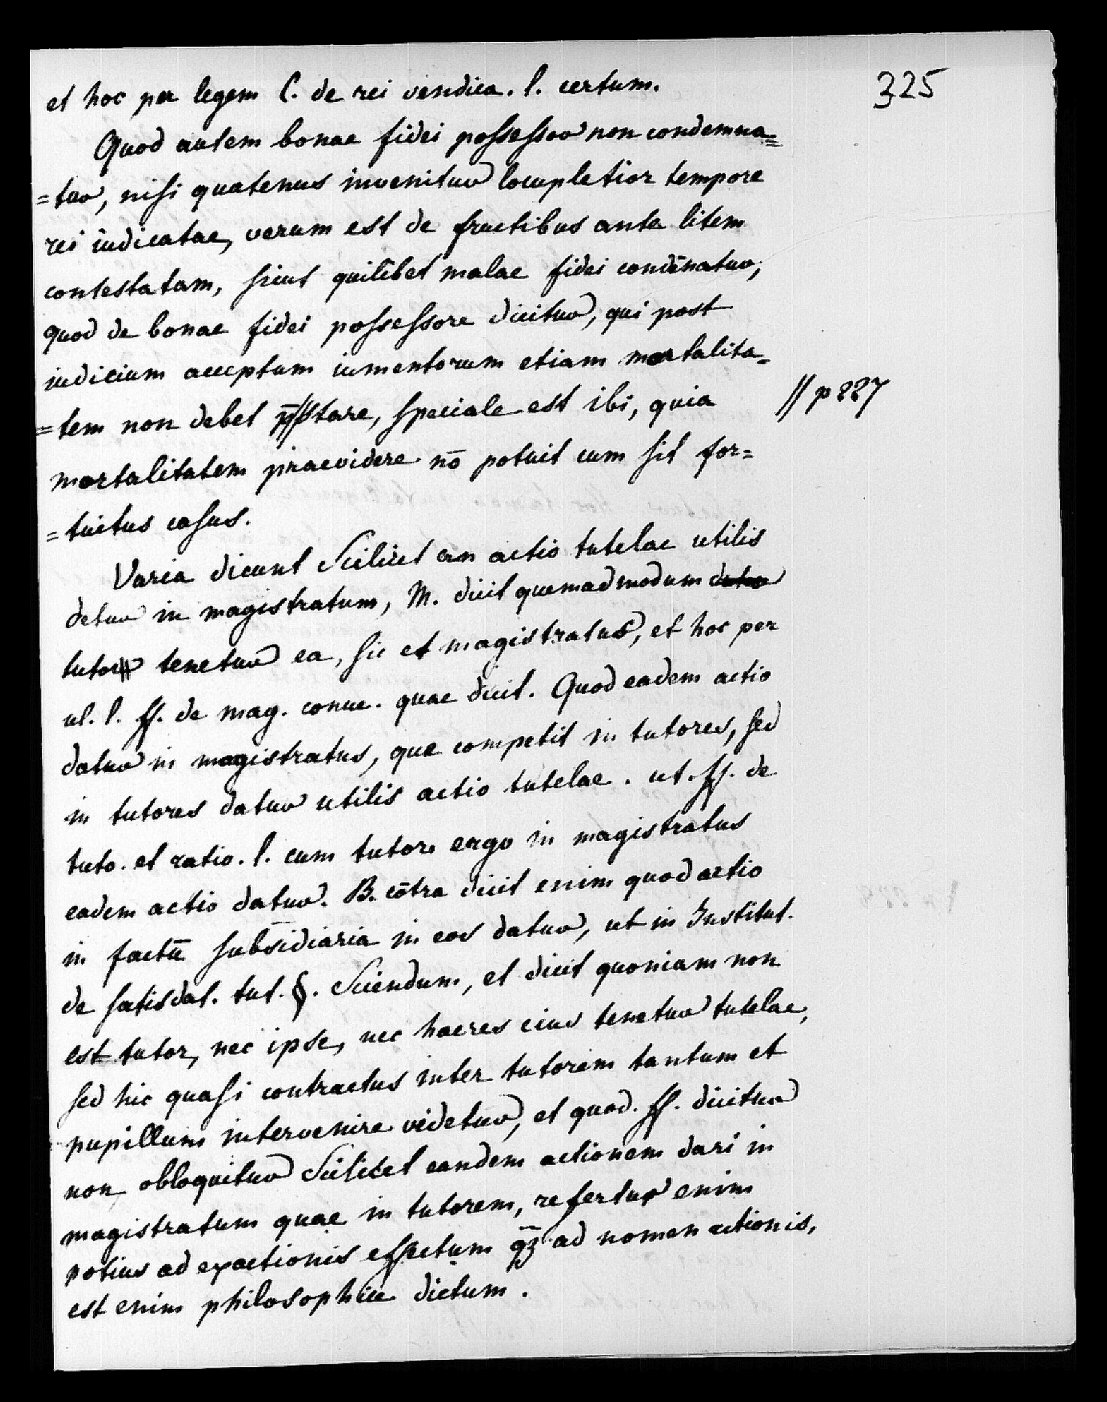 325
et hoc per legem C. de rei vendica. l. certum.
Quod autem bonae fidei possessor non condemna=
=tur, nisi quatenus invenitur locupletior tempore
rei iudicatae, verum est de fructibus ante litem
contestatam, sicut quilibet malae fidei condēnatur,
quod de bonae fidei possessore dicitur, qui post
iudicium acceptum iumentorum etiam mortalita=
=tem non debet p̄//stare, speciale est ibi, quia
// p 227
mortalitatem praevidere nō potuit cum sit for=
=tuitus casus.
Varia dicunt Scilicet an actio tutelae utilis
detur in magistratum, M. dicit quemadmodum
tutor tenetur ea, sic et magistratus, et hoc per
ul. l. ff. de mag. conue. quae dicit. Quod eadem actio
datur in magistratus, que competit in tutores, sed
in tutores datur utilis actio tutelae. ut. ff. de
tuto. et ratio. l. cum tutore ergo in magistratus
eadem actio datur. B. cōtra dicit enim quod actio
in factū subsidiaria in eos datur, ut in Institut.
de satisdat. tut. §. Sciendum, et dicit quoniam non
est tutor, nec ipse, nec haeres eius tenetur tutelae,
sed hic quasi contractus inter tutorem tantum et
pupillum intervenire videtur, et quod. ff. dicitur
non obloquitur Scilicet eandem actionem dari in
magistratum quae in tutorem, refertur enim
potius ad exactionis effectum q̄ȝ ad nomen actionis,
est enim philosophice dictum.